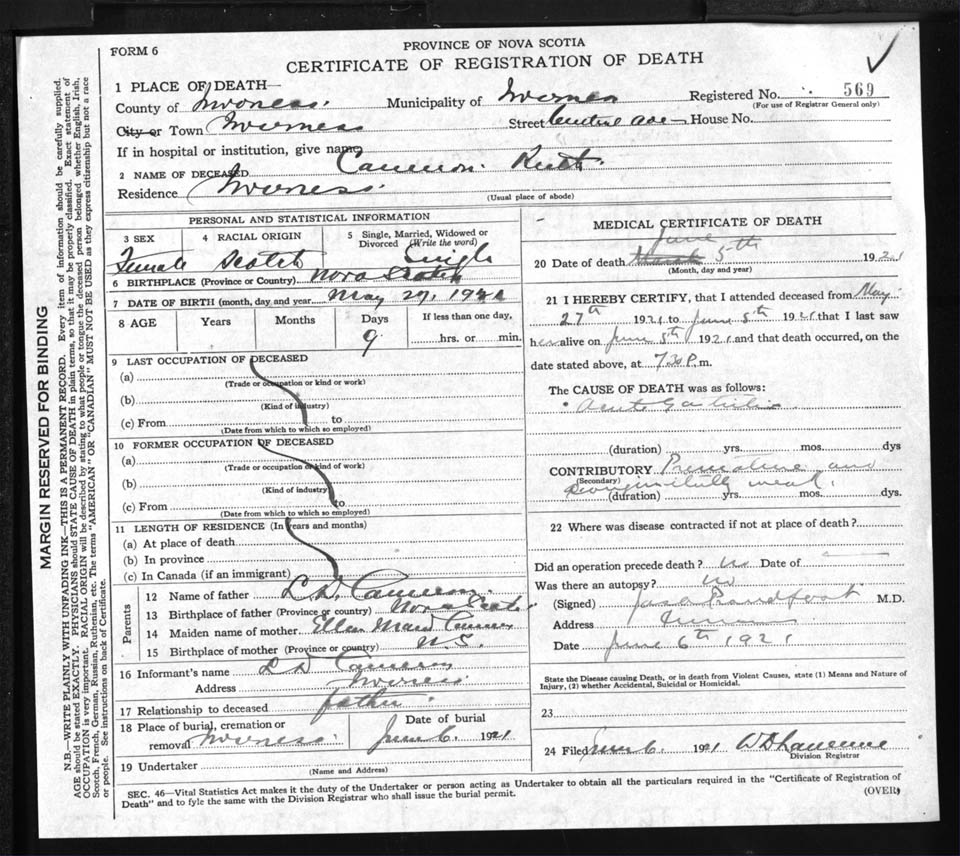 FORM 6
PROVINCE OF NOVA SCOTIA
CERTIFICATE OF REGISTRATION OF DEATH
1 PLACE OF DEATH—
County of Inverness. Municipality of Inverness Registered No. 569
(For use of Registrar General only)
City or Town Inverness Street Central ave House No.
If in hospital or institution, give name
2 NAME OF DECEASED Cameron. Ruth.
Residence Inverness.
(Usual place of abode)
PERSONAL AND STATISTICAL INFORMATION
3 SEX 4 RACIAL ORIGIN 5 Single, Married, Widowed or Divorced (Write the word)
Female Scotch Single
6 BIRTHPLACE (Province or Country) Nova Scotia
7 DATE OF BIRTH (month, day and year) May 27, 1921
8 AGE Years Months Days If less than one day,
9 hrs. or min.
9 LAST OCCUPATION OF DECEASED
(a)
(Trade or occupation or kind or work)
(b)
(Kind of industry)
(c) From to
(Date from which to which so employed)
10 FORMER OCCUPATION OF DECEASED
(a)
(Trade or occupation or kind of work)
(b)
(Kind of industry)
(c) From to
(Date from which to which so employed)
11 LENGTH OF RESIDENCE (In years and months)
(a) At place of death
(b) In province
(c) In Canada (if an immigrant)
Parents
12 Name of father L.D. Cameron.
13 Birthplace of father (Province or country) Nova Scotia
14 Maiden name of mother Ellen
15 Birthplace of mother (Province or country) N.S.
16 Informant's name L D Cameron
Address Inverness
17 Relationship to deceased father.
18 Place of burial, cremation or Date of burial
removal Inverness. June 6. 1921
19 Undertaker
(Name and Address)
MEDICAL CERTIFICATE OF DEATH
June
20 Date of death March 5th 1921
(Month, day and year)
21 I HEREBY CERTIFY, that I attended deceased from May
27th 1921 to June 5th 1921 that I last saw
her alive on June 5th 1921 and that death occurred, on the
date stated above, at 7.30 P.m.
The CAUSE OF DEATH was as follows:
Acute Gastritis
(duration) yrs. mos. dys
CONTRIBUTORY Premature and
(Secondary)
weak.
(duration) yrs. mos. dys.
22 Where was disease contracted if not at place of death?
Did an operation precede death? no Date of —
Was there an autopsy? no
(Signed) M.D.
Address
Date June 6th 1921
State the Disease causing Death, or in death from Violent Causes, state (1) Means and Nature of
Injury, (2) whether Accidental, Suicidal or Homicidal.
23
24 Filed June 6. 1921
Division Registrar
SEC. 46—Vital Statistics Act makes it the duty of the Undertaker or person acting as Undertaker to obtain all the particulars required in the "Certificate of Registration of
Death" and to fyle the same with the Division Registrar who shall issue the burial permit.
(OVER)
MARGIN RESERVED FOR BINDING
N.B.—WRITE PLAINLY WITH UNFADING INK—THIS IS A PERMANENT RECORD. Every item of information should be carefully supplied.
AGE should be stated EXACTLY. PHYSICIANS should STATE CAUSE OF DEATH in plain terms, so that it may be properly classified. Exact statement of
OCCUPATION is very important. RACIAL ORIGIN will be described by stating to what people or tongue the deceased person belonged whether English, Irish,
Scotch, French, German, Russian, Ruthenian, etc. The terms "AMERICAN" OR "CANADIAN" MUST NOT BE USED as they express citizenship but not a race
or people. See instructions on back of Certificate.